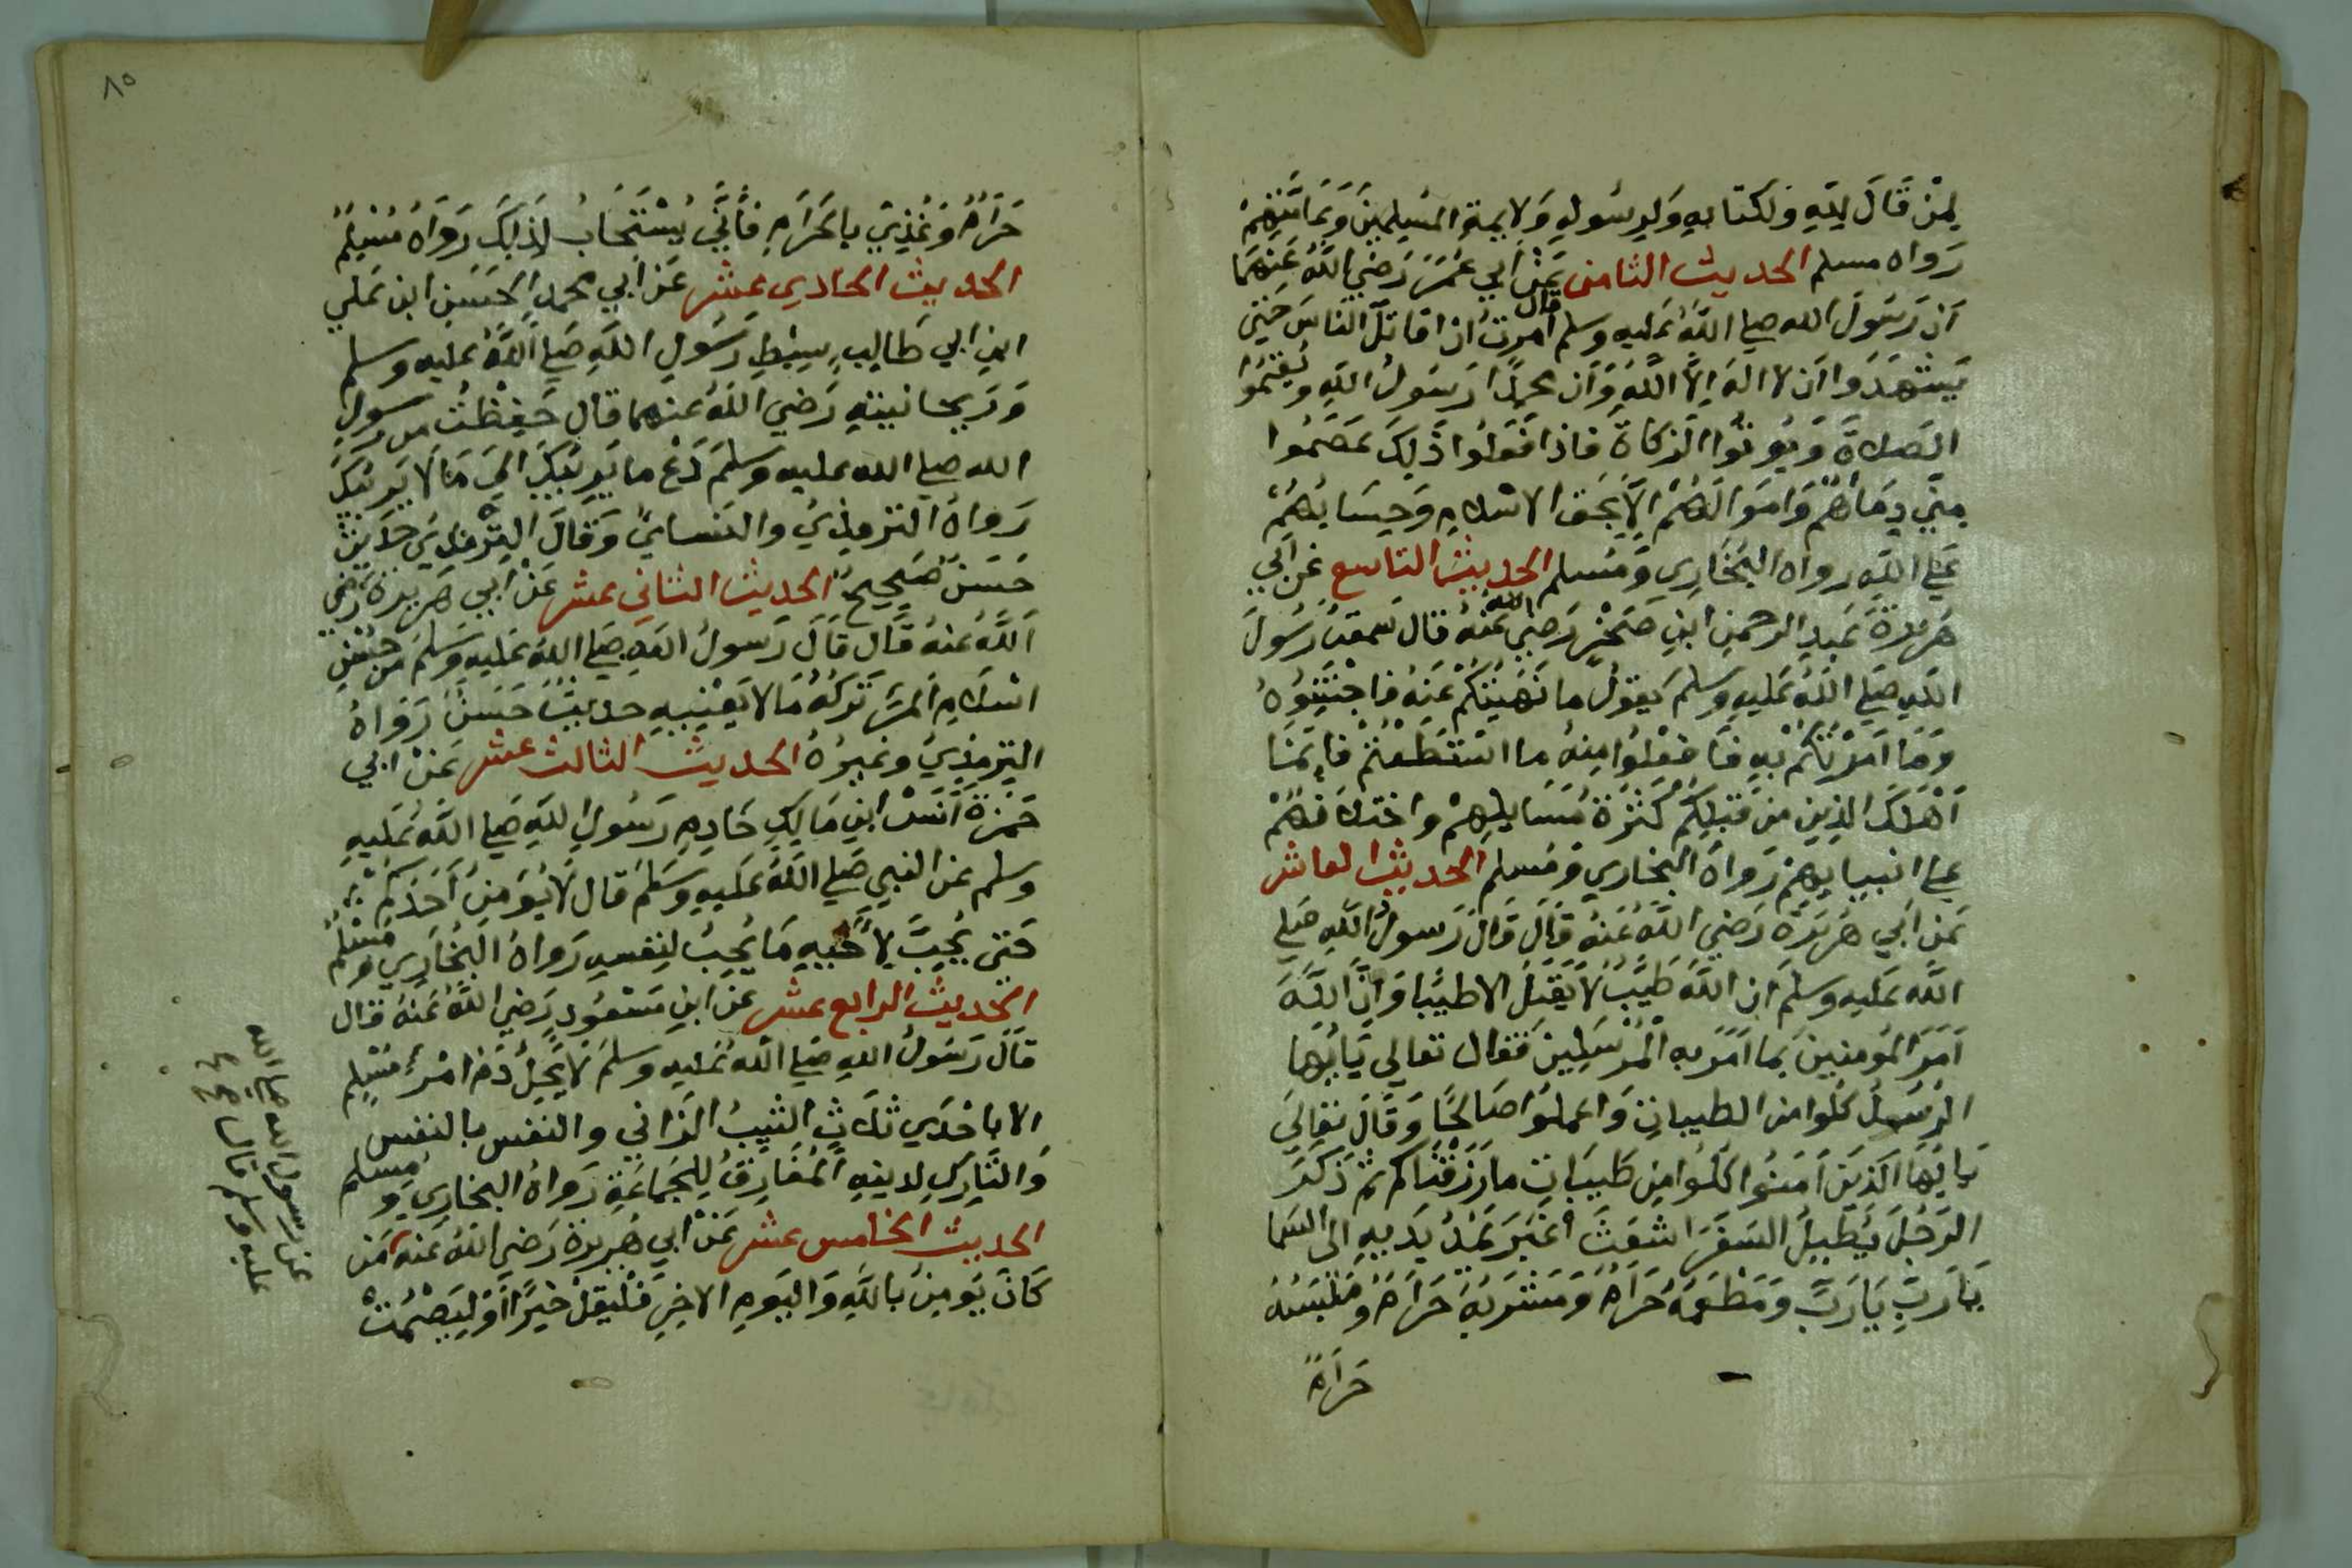 لِمَنْ قَالَ لِلَّهِ وَلِكتَابِهِ وَلِرَسُولِهِ وَلِأيِمةِ المسْلِمِينَ وَعَامَّتِهِمْ
رَوَاه مسلم الحديث الثامن عَنْ اَبِي عُمَرَ رَضِيَ اللَّهُ عَنْهُمَا
اَن رَسُولَ الله صلي اللَّهُ عَليهِ وسلم قال اُمِرتُ ان اقاتلَ النَاسَ حَتى
يَشهَدُوا اَن لا الهَ اِلَّا اللَّهُ وَاَن محمدًا رَسُولُ اللَّهِ وَيُقِيمُوا
الصَلاةَ وَيُوتُوا الزكاةَ فاذا فَعَلُوا ذَلِكَ عَصَمُوا
مِنّي دِمَاهُمْ وَامَوَالَهُمْ اِلَّا بِحَق الاسْلامِ وَحِسَابُهُمْ
عَلي اللَّهِ رواه البُخَارِي وَمُسلم الحديث التاسع عَن اَبي
هَرِيرَةَ عَبدِ الرحمنِ ابنِ صَخْرٍ رَضِي الله عَنْهُ قال سَمعتُ رَسُولَ
اللَّهِ صَلي اللَّهُ عَليهِ وَسلمَ يَقولُ ما نَهَيْتُكُمْ عَنهُ فَاجْتَنِبُوهُ
وَمَا اَمَرْتُكُمْ بِهِ فَافعَلُوا مِنهُ ما اسْتَطَعْتُمْ فَاِنمَا
اَهْلَكَ الذِينَ مِن قَبلِكُمْ كَثْرَةُ مَسَايلِهِمْ واختلافهُمْ
علي انبيايهم رَواهُ البخاري وَمُسلم الحديث العاشر
عَن اَبي هُرَيرَةَ رَضِي اللَّهُ عَنهُ قَالَ قَالَ رَسولُ اللَّهِ صَلي
اللَّه عَليهِ وسلم اِن اللَّهَ طَيِّبٌ لَا يَقبَلُ الا طيبًا وَاِنَّ اللَّهَ
اَمَرَ المُومِنينَ بِمَا اَمَرَ بِهِ الْمُرْسَلِينَ فَقال تعالي يَايُّهَا
الرُسُلُ كُلُوا من الطيباتِ وَاعملُوا صَالحًا وَقَالَ تعَاليَ
يَايُّهَا الَذِينَ اَمَنُوا كلُوا مِن طَيبَاتِ ما رَزَقْنَاكم ثمَّ ذَكَرَ
الرَجُلَ يُطِيلُ السَفَرَ اشعَثَ اَغبَرَ يَمُدُّ يَدَيهِ الى السَما
يَا رَبِّ يَا رَبِّ وَمَطْعَمُهُ حَرَامٌ وَمَشْرَبُهُ حَرَامٌ وَمَلبَسُهُ
حَرَامٌ
٨٥
حَرَامٌ وَغُذِيَ بِالحَرَامِ فَأَنَّي يُسْتَجَابُ لِذَلِكَ رَوَاهُ مُسْلِمٌ
الحديث الحادي عشر عَن اَبي محمدٍ الحَسَنِ ابن عَلي
ابنِ ابي طَالِبٍ سِبْطِ رَسُولِ اللَّهِ صَلي اللَّهُ عليهِ وسلم
وَرَيحانيتهِ رَضِي اللَّهُ عنهما قال حَفِظْتُ من رَسُولِ
الله صلي الله عليهِ وَسلمَ دَعْ ما يَرِيْبُكَ اِليَ مَا لَا يَرِيْبُكَ
رَوَاهُ الترمِذِيُ والنَسايُ وَقَالَ التِرْمِذِيُ حَدِيثٌ
حَسَنٌ صَحِيحٌ الحديث الثاني عشر عَنْ ابي هَرِيرَةَ رَضي
اَللَّهُ عَنهُ قَالَ قَالَ رَسولُ اللَّهِ صَلي اللَّهُ عَليهِ وَسَلمَ مِن حُسْنِ
اسْلامِ المَرءِ تَرْكُهُ مَا لَا يَعْنِيهِ حديثٌ حَسَنٌ رَوَاهُ
التِرمِذِيُ وَغَيرُهُ الحديث الثالث عشر عَنْ ابي
حَمزَةَ اَنَسْ ابنِ مَالِكٍ خَادِمِ رَسُولِ اللَّهِ صَلي اللَّهُ عَليهِ
وسلم عَن النبي صَلي اللَّهُ عَليهِ وَسَلمَ قال لَا يُؤمِنُ اَحَدُكُمْ
حَتى يُحِبَّ لِأَخِيهِ مَا يُحِبُ لِنفسِهِ رَوَاهُ البُخَارِي وَمُسْلِمٌ
الحديثُ الرابع عشر عَن ابنِ مَسْعُودٍ رَضِي اللَّهُ عَنهُ قال
قالَ رَسُولُ اللهِ صَلي اللَّهُ عَليهِ وسلمَ لَا يَحِلُّ دَمُ امْرِئٍ مُسْلِمٍ
الا باحْدَي ثَلَاثٍ الثيِّبُ الزاني والنفس بالنفس
وَالتَّارِكِ لِدِينِهِ المُفَارِقُ لِلجَماعَةِ رَوَاهُ البخارِي وَمُسلم
الحديث الخامس عشر عَنْ ابي هُرَيرَةَ رَضي اللَّهُ عَنهُ مَن
كَانَ يَومِنُ باللَّهِ وَاليَومِ الاخِرِ فَلْيَقلْ خَيرًا اَوْ لِيَصْمُتْ
عن رسول الله صلي الله
عليه وسلم قال